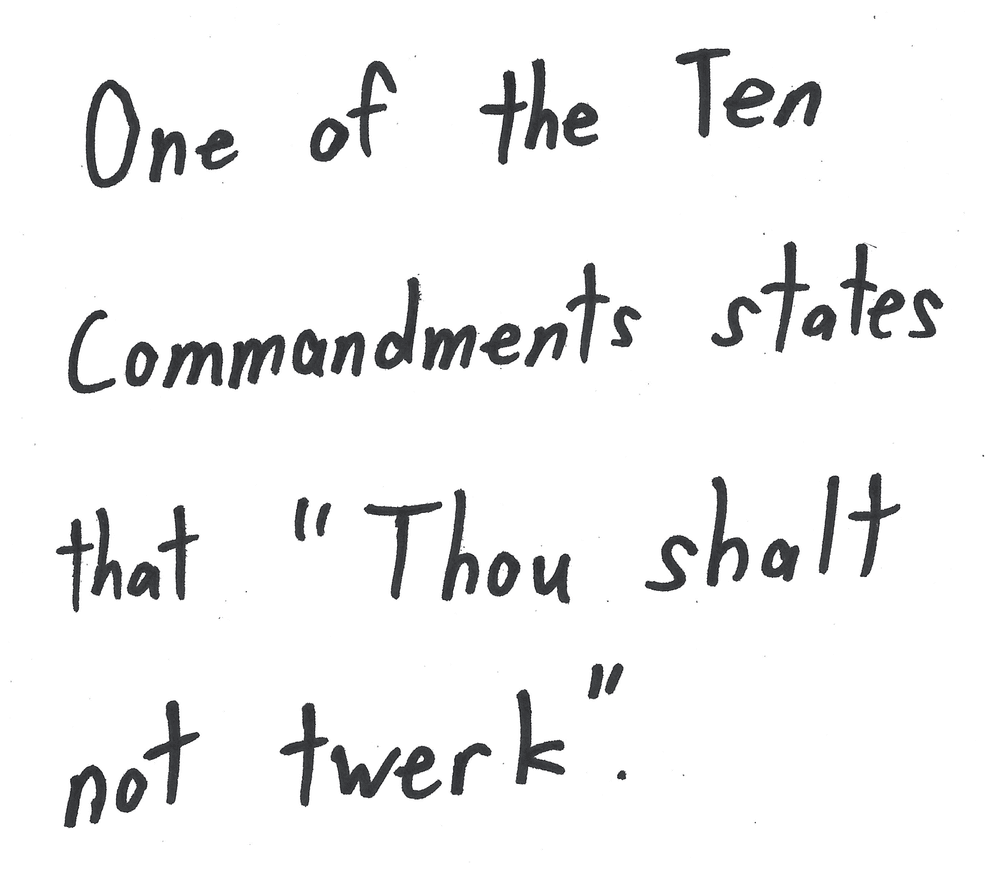 One of the Ten
Commandments states
that "Thou shalt
not twerk".